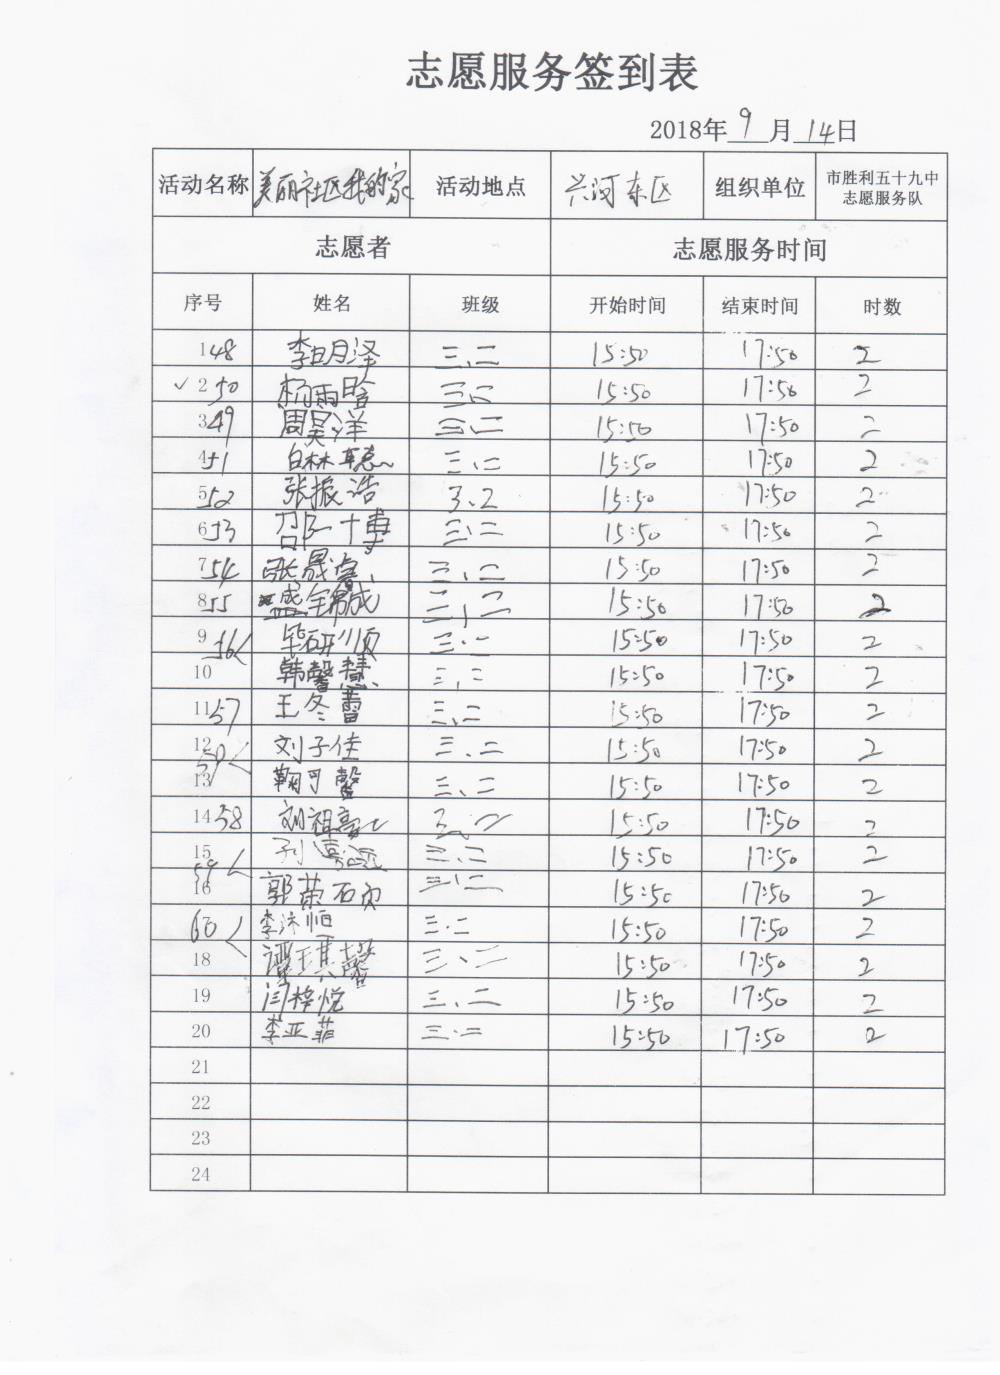 志愿服务签到表
2018年9月14日
活动名称 美丽社区我的家 活动地点 兴河东区 组织单位 市胜利五十九中志愿服务队
志愿者 志愿服务时间
序号 姓名 班级 开始时间 结束时间 时数
1 48 李明泽 三、二 15:50 17:50 2
✓ 2 50 杨雨晗 三、二 15:50 17:50 2
3 49 周昊洋 三、二 15:50 17:50 2
4 51 白林聪 三、二 15:50 17:50 2
5 52 张振浩 3、2 15:50 17:50 2
6 53 邵一博 三、二 15:50 17:50 2
7 54 张晟睿 三、二 15:50 17:50 2
8 55 盛 三、二 15:50 17:50 2
9 56 毕研顺 三、二 15:50 17:50 2
10 韩馨慧 三、二 15:50 17:50 2
11 57 王冬蕾 三、二 15:50 17:50 2
12 刘子佳 三、二 15:50 17:50 2
13 鞠可馨 三、二 15:50 17:50 2
14 58 刘祖豪 三、二 15:50 17:50 2
15 三、二 15:50 17:50 2
59
16 郭荣硕 三、二 15:50 17:50 2
60 李沐恒 三、二 15:50 17:50 2
18 谭琪馨 三、二 15:50 17:50 2
19 闫梓悦 三、二 15:50 17:50 2
20 李亚菲 三、二 15:50 17:50 2
21
22
23
24